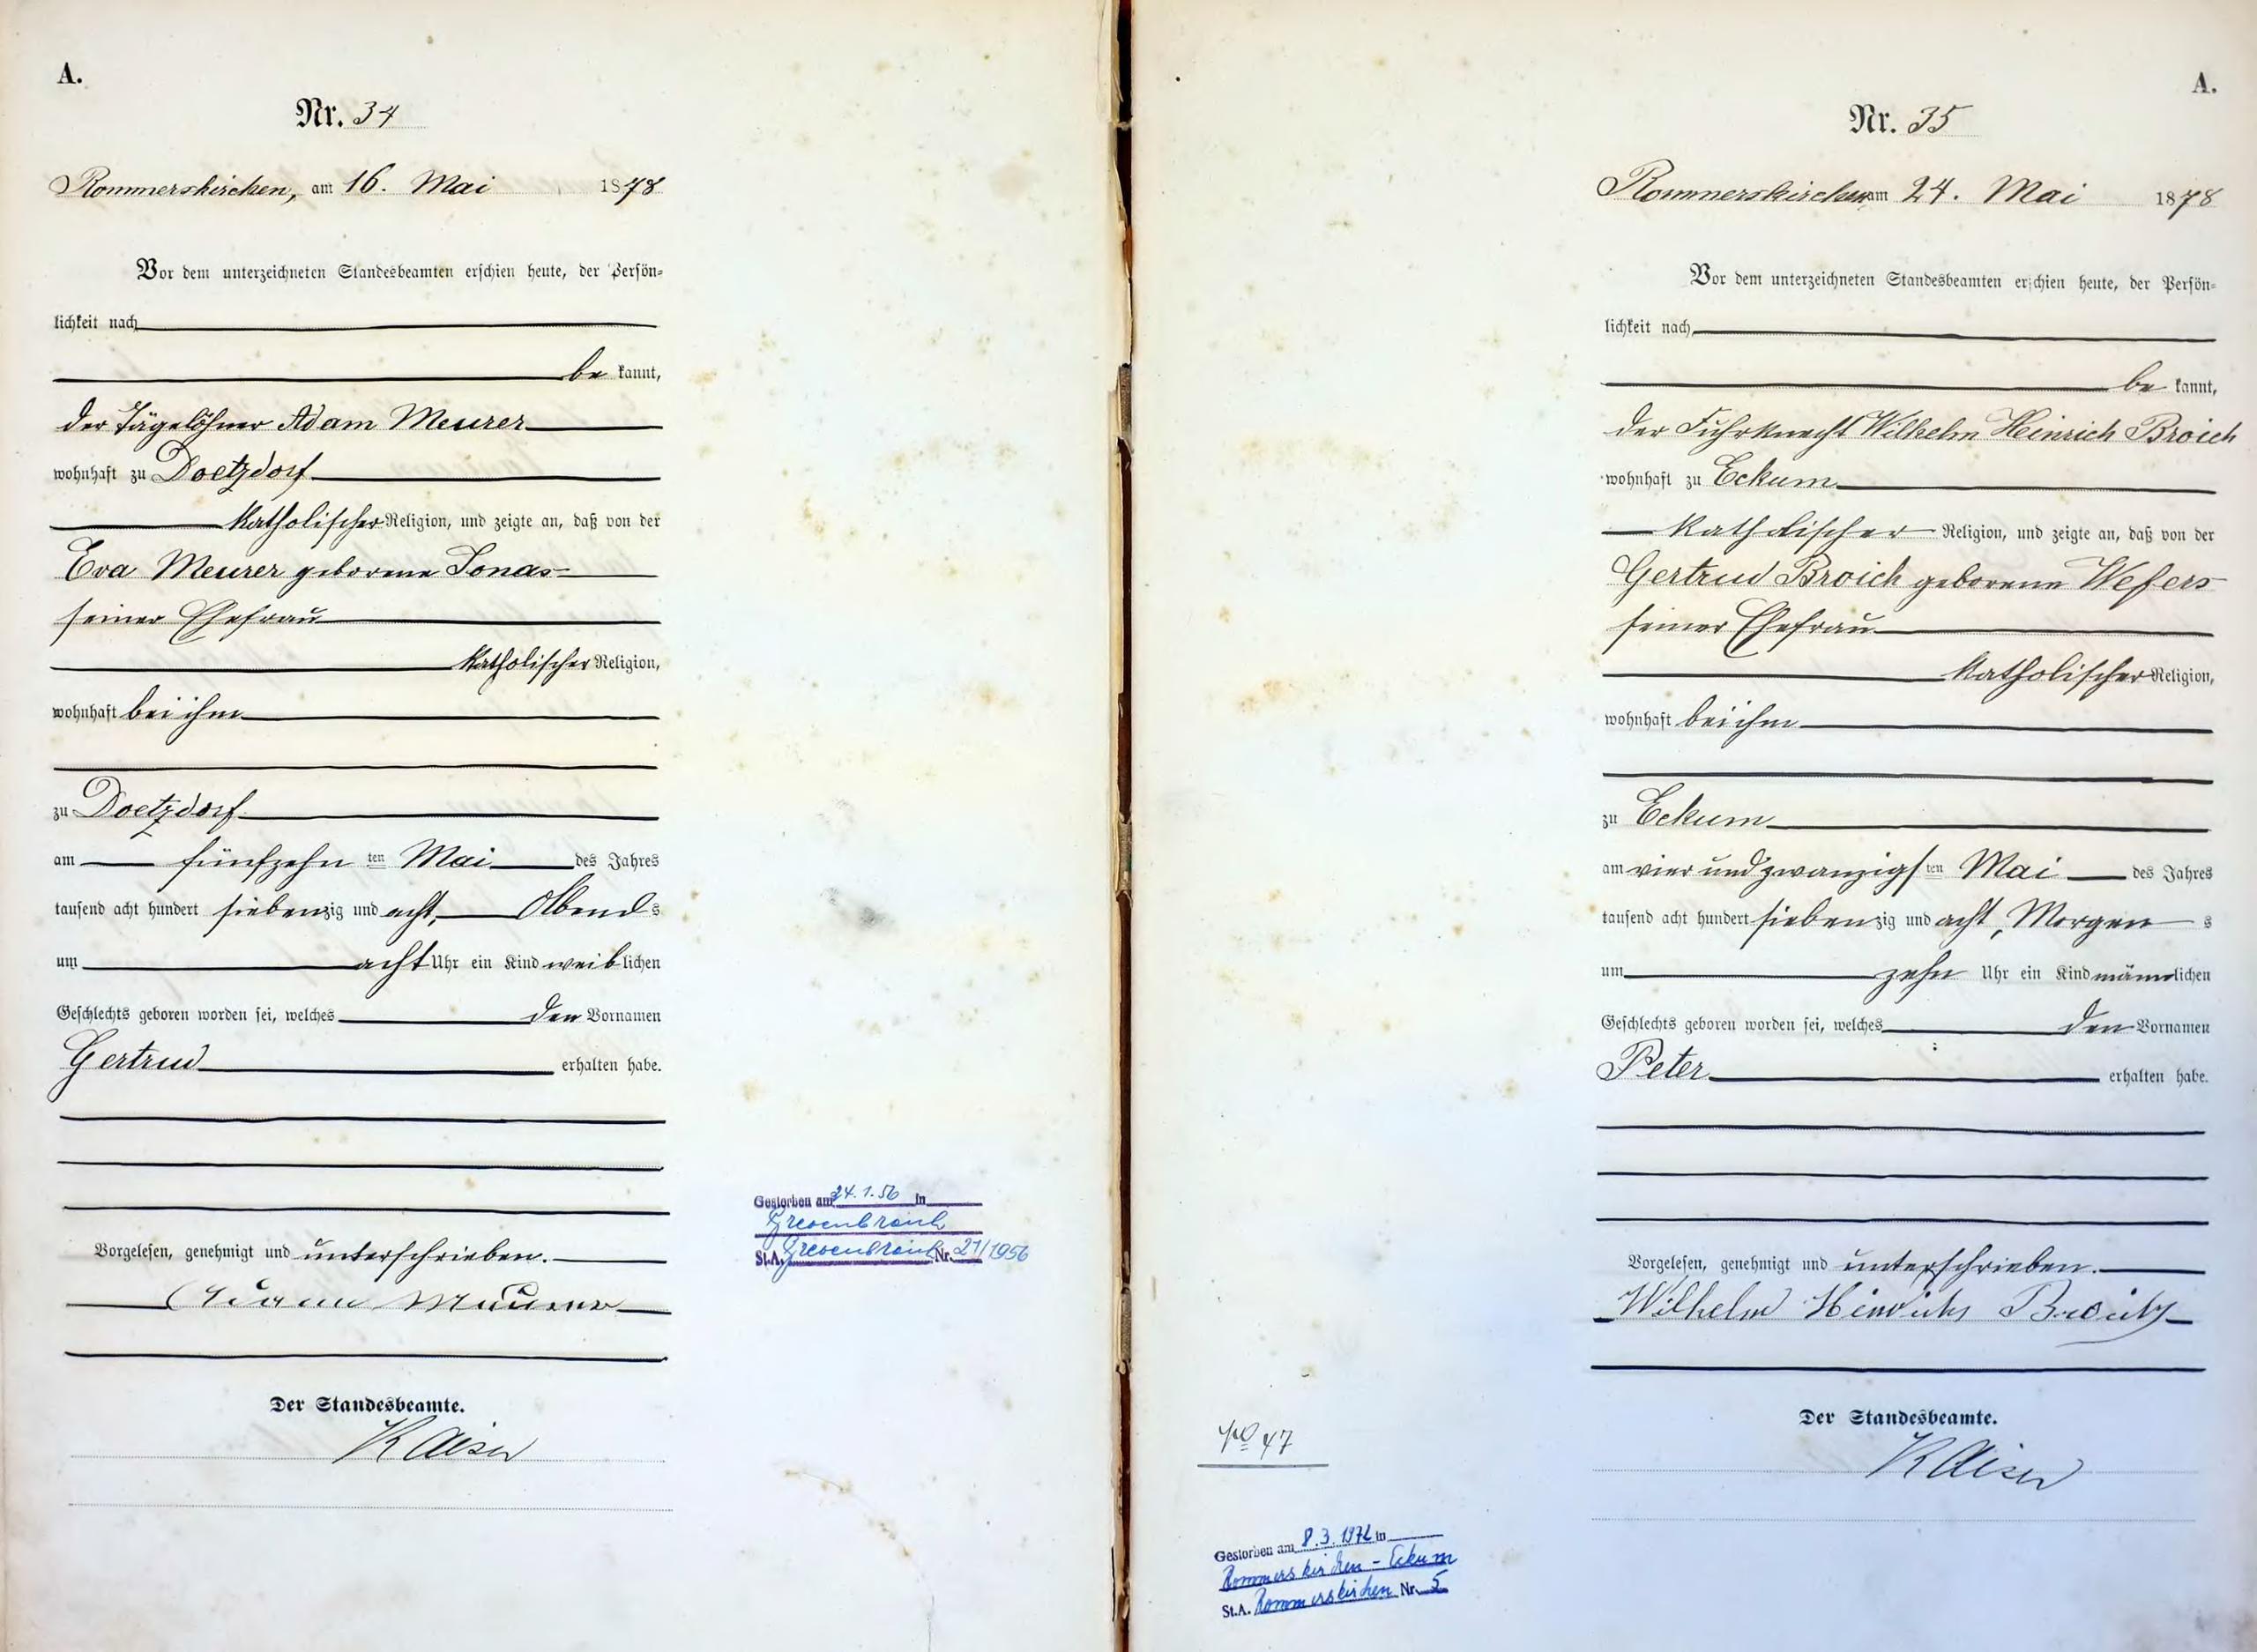 A.
Nr. 34
Rommerskirchen, am 16. Mai 1878
Vor dem unterzeichneten Standesbeamten erschien heute, der Persön-
lichkeit nach
be kannt,
der Tägelöhner Adam Meurer
wohnhaft zu Doetzdorf
katholischer Religion, und zeigte an, daß von der
Eva Meurer geborene Jonas
seiner Ehefrau
katholischer Religion,
wohnhaft bei ihm
zu Doetzdorf
am fünfzehn ten Mai des Jahres
tausend acht hundert siebenzig und acht, Abends
um acht Uhr ein Kind weiblichen
Geschlechts geboren worden sei, welches den Vornamen
Gertrud erhalten habe.
Vorgelesen, genehmigt und unterschrieben.
Adam Meurer
Der Standesbeamte.
Kaiser
Gestorben am 24.1.56 in
Grevenbroich
St.A. Grevenbroich Nr. 21/1956
A.
Nr. 35
Rommerskirchen am 24. Mai 1878
Vor dem unterzeichneten Standesbeamten erschien heute, der Persön-
lichkeit nach
be kannt,
der Fuhrknecht Wilhelm Heinrich Broich
wohnhaft zu Eckum
katholischer Religion, und zeigte an, daß von der
Gertrud Broich geborene Wefers
seiner Ehefrau
katholischer Religion,
wohnhaft bei ihm
zu Eckum
am vier und zwanzigsten Mai des Jahres
tausend acht hundert siebenzig und acht, Morgens
um zehn Uhr ein Kind männlichen
Geschlechts geboren worden sei, welches den Vornamen
Peter erhalten habe.
Vorgelesen, genehmigt und unterschrieben.
Wilhelm Heinrich Broich
Der Standesbeamte.
Kaiser
No 47
Gestorben am 8.3.1972 in
Rommerskirchen - Eckum
St.A. Rommerskirchen Nr. 5